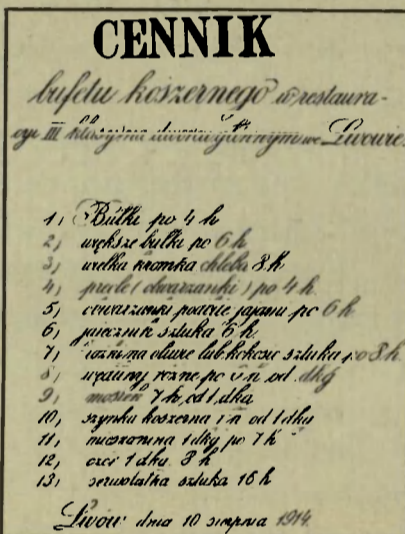 CENNIK
bufetu koszernego w restaura-
cyi III klasy na dworcu we Lwowie.
1, Bułki po 4 h
2, większe bułki po 6 h
3, wielka kromka chleba 8 h
4, precle (obwarzanki) po 4 h.
5, po 6 h
6, sztuka 6 h
7, na oliwie lub kokosie sztuka po 8 h.
8, wędliny różne po od dkg
9, 7 h, od 1 dka
10, szynka koszerna od 1 dkg
11, mieszanina 1 dkg po 7 h
12, ozór 1 dkg. 8 h
13, serwolatka sztuka 16 h
Lwów dnia 10 sierpnia 1914.